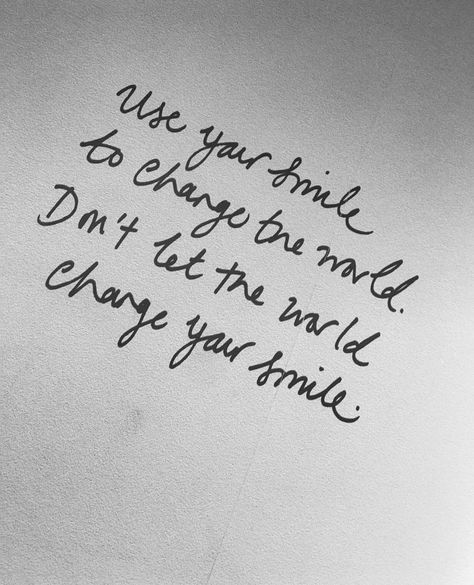 Use your smile
to change the world.
Don't let the world
change your smile.